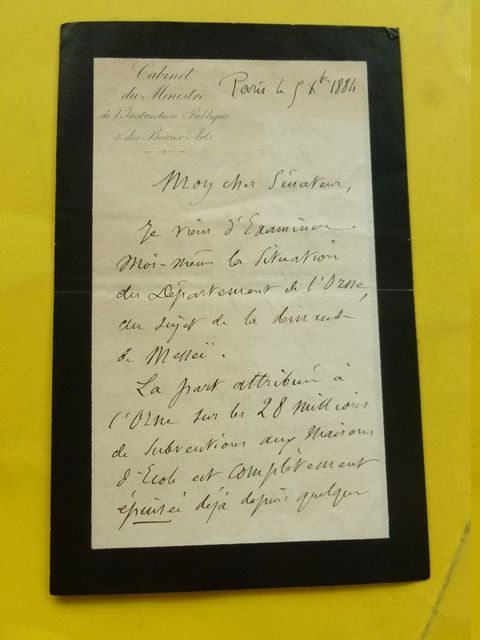 Cabinet
du Ministre
de l'Instruction Publique
& des Beaux-Arts
Paris le 5 Xbre 1884
Mon cher Sénateur,
Je viens d'Examiner
Moi-même la Situation
du Département de l'Orne,
au sujet de la demande
de Messei.
La part attribuée à
l'Orne sur les 28 millions
de Subventions aux Maisons
d'Ecole est complètement
épuisée déjà depuis quelque